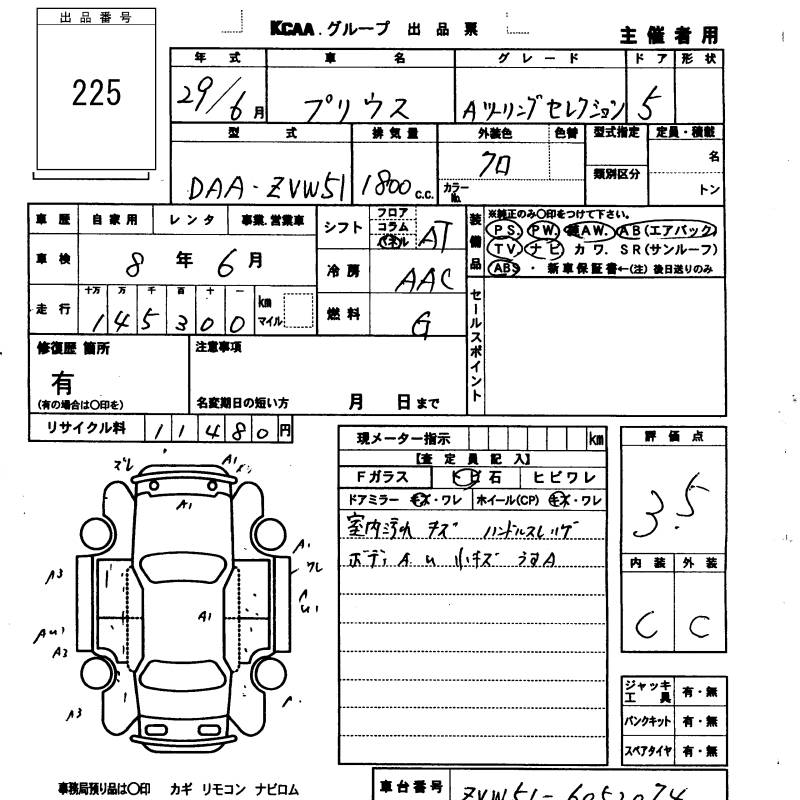 出品番号
225
KCAA.グループ 出品票
主催者用
年式 車名 グレード ドア 形状
29/6月 プリウス Aツーリングセレクション 5
型式 排気量 外装色 色替 型式指定 定員・積載
DAA-ZVW51 1800 c.c. クロ カラーNo. 類別区分 名
トン
車歴 自家用 レンタ 事業.営業車
車検 8年6月
走行 十万 万 千 百 十 一 km マイル
145300
シフト フロア コラム パネル AT
冷房 AAC
燃料 G
装備品 ※純正のみ〇印をつけて下さい。
PS. PW. AW. AB(エアバック)
TV ナビ カワ. SR(サンルーフ)
ABS ・ 新車保証書←(注)後日送りのみ
セールスポイント
修復歴 箇所
有
(有の場合は〇印を)
注意事項
名変期日の短い方 月 日まで
リサイクル料 11480円
現メーター指示 km
【査定員記入】
Fガラス トビ石 ヒビワレ
ドアミラー キズ・ワレ ホイール(CP) キズ・ワレ
室内汚れ キズ ハンドルスレ
ボディ A U 小キズ うすA
評価点
3.5
内装 外装
C C
ズレ A1
A1
A1
A3 ワレ
A1
A3
A3
ジャッキ工具 有・無
パンクキット 有・無
スペアタイヤ 有・無
事務局預り品は〇印 カギ リモコン ナビロム
車台番号 ZVW51-6052074